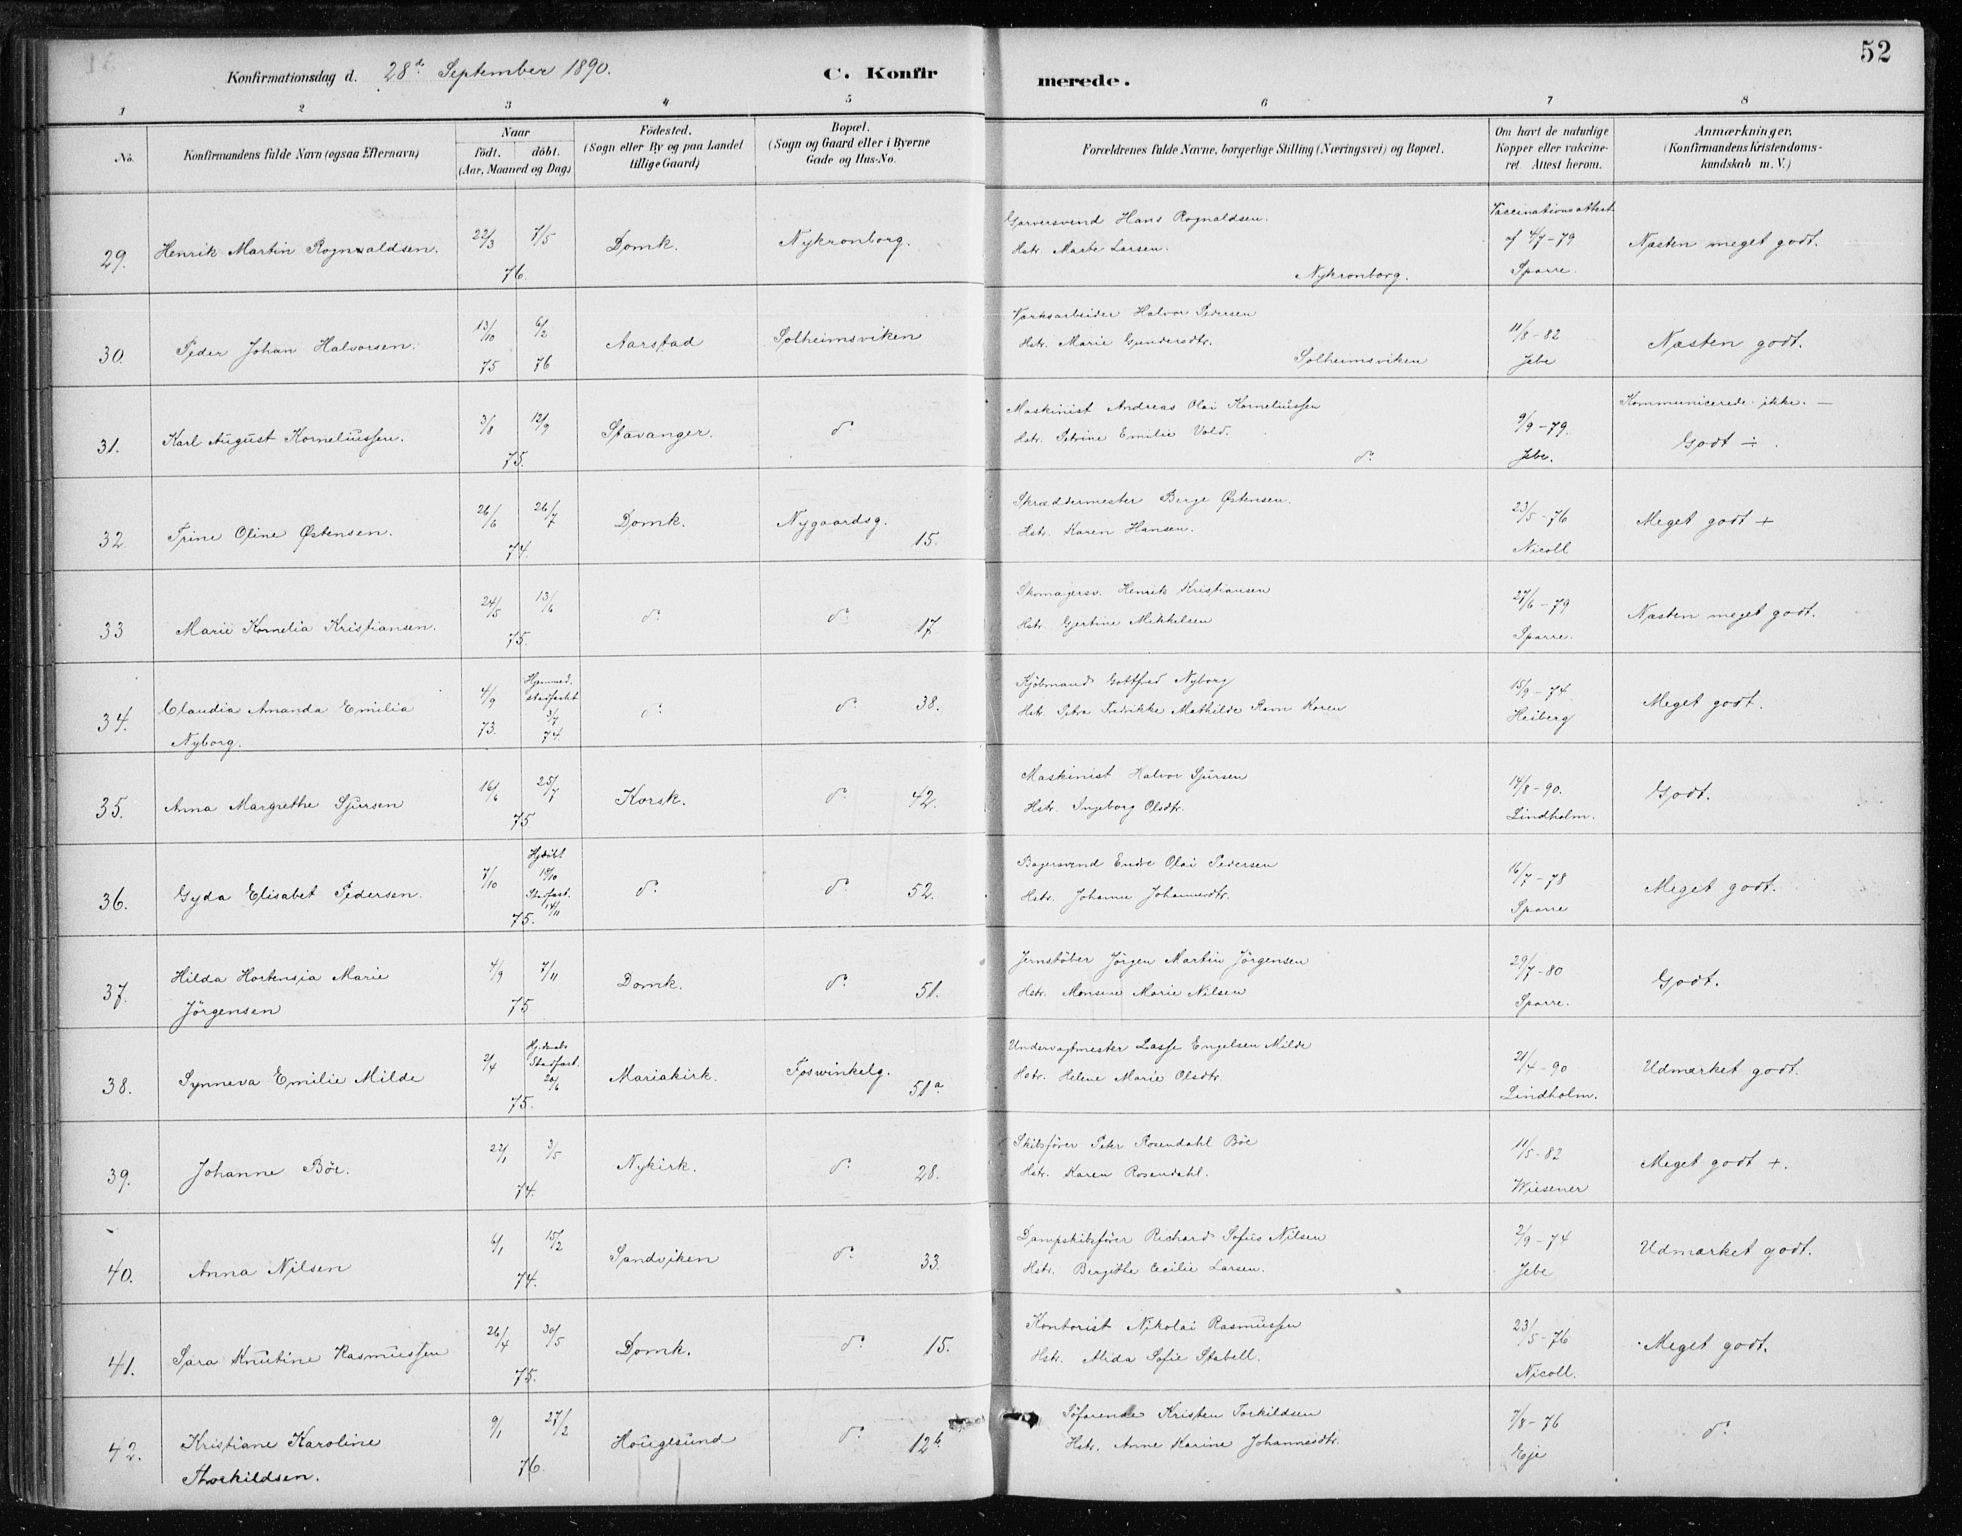 52
Konfirmationsdag d. 28de September 1890. C. Konfirmerede.
1 2 3 4 5 6 7 8
No. Konfirmandens fulde Navn (ogsaa Efternavn) Naar födt. döbt. (Aar, Maaned og Dag) Födested. (Sogn eller By og paa Landet tillige Gaard) Bopæl. (Sogn og Gaard eller i Byerne Gade og Hus-No. Forældrenes fulde Navne, borgerlige Stilling (Næringsvei) og Bopæl. Om havt de naturlige Kopper eller vakcineret. Attest herom. Anmærkninger. (Konfirmandens Kristendomskundskab m. V.)
29. Henrik Martin Rognvaldsen. 22/3 7/5 76. Domk. Nykronborg. Garversvend Hans Rognaldsen. Vaccinationsattest
Hstr. Marte Larsen. Nykronborg. af 4/7-79 Sparre. Næsten meget godt.
30. Peder Johan Halvorsen. 13/10 75 6/2 76 Aarstad Solheimsviken Værksarbeider Halvor Pedersen
Hstr. Marie Gundersdtr. Solheimsviken 11/8-82 Jebe Næsten godt.
31. Karl August Korneliussen. 3/8 12/9 75. Stavanger. do Maskinist Andreas Olai Korneliussen
Hstr. Petrine Emilie Vold. do 9/9-79. Jebe. Kommunicerede ikke. — Godt ÷.
32. Trine Oline Østensen. 26/6 26/7 74. Domk. Nygaardsg. 15. Skræddermester Berge Østensen.
Hstr. Karen Hansen. 23/5-76 Nicoll Meget godt +
33 Marie Kornelia Kristiansen. 24/5 13/6 75. do do 17 Skomagersv. Henrik Kristiansen
Hstr. Gertine Mikkelsen 27/6-79 Sparre. Næsten meget godt.
34. Claudia Amanda Emilia 4/9 73. Hjemmed. stadfæstet 3/7 74. do do 38. Kjöbmand Gottfred Nyborg
Nyborg. Hstr. Petra Fredrikke Mathilde Ravn Koren 15/9-74 Heiberg Meget godt.
35. Anna Margrethe Sjursen 16/6 25/7 75 Korsk. do 42. Maskinist Halvor Sjursen
Hstr. Ingeborg Olsdtr. 14/8-90. Lindholm. Godt.
36. Gyda Elisabet Pedersen. 7/10 Hjdöbt Stadfæst. 14/11 75. do do 52. Bagersvend Endre Olai Pedersen
Hstr. Johanne Johannesdtr. 16/7-78 Sparre Meget godt.
37. Hilda Hortensia Marie 4/9 7/11 75. Domk. do 51. Jernstöber Jörgen Martin Jörgensen
Jörgensen Hstr. Monsine Marie Nilsen 29/7-80 Sparre. Godt.
38. Synneva Emilie Milde 2/4 Stadfæst. 20/6 75. Mariakirk. Foswinkelg. 51a Undervagtmester Lasse Engelsen Milde
Hstr. Helene Marie Olsdtr. 21/4-90 Lindholm. Udmærket godt.
39. Johanne Böe. 22/1 3/5 74. Nykirk. do 28. Skibsförer Petr Rosendahl Böe
Hstr. Karen Rosendahl. 11/5-82 Wiesener Meget godt +.
40. Anna Nilsen 6/1 15/2 74. Sandviken do 33. Dampskibsförer Richard Sofus Nilsen
Hstr. Bergithe Cecilie Larsen. 2/9-74 Jebe Udmærket godt.
41. Sara Knutine Rasmussen 26/4 30/5 75. Domk. do 15. Kontorist Nikolai Rasmussen
Hstr. Alida Sofie Stabell. 23/5-76 Nicoll. Meget godt.
42. Kristiane Karoline 9/1 27/2 76. Hougesund do 12b. Söfarende Kristen Torkildsen
Thorkildsen. Hstr. Anne Karine Johannesdtr. 7/8-76 Eje do